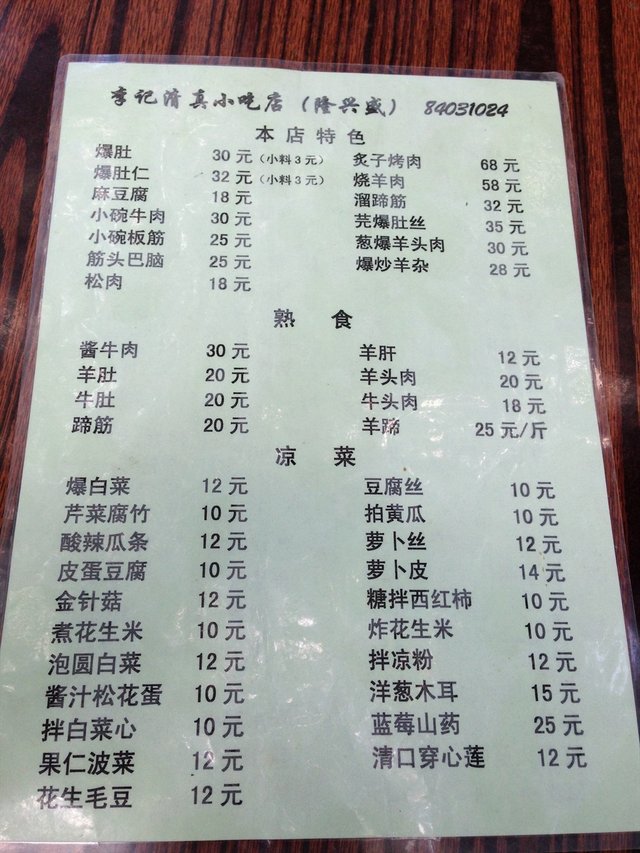 李记清真小吃店（隆兴盛） 84031024
本店特色
爆肚 30元（小料3元） 炙子烤肉 68元
爆肚仁 32元（小料3元） 烧羊肉 58元
麻豆腐 18元 溜蹄筋 32元
小碗牛肉 30元 芫爆肚丝 35元
小碗板筋 25元 葱爆羊头肉 30元
筋头巴脑 25元 爆炒羊杂 28元
松肉 18元
熟 食
酱牛肉 30元 羊肝 12元
羊肚 20元 羊头肉 20元
牛肚 20元 牛头肉 18元
蹄筋 20元 羊蹄 25元/斤
凉 菜
爆白菜 12元 豆腐丝 10元
芹菜腐竹 10元 拍黄瓜 10元
酸辣瓜条 12元 萝卜丝 12元
皮蛋豆腐 10元 萝卜皮 14元
金针菇 12元 糖拌西红柿 10元
煮花生米 10元 炸花生米 10元
泡圆白菜 12元 拌凉粉 12元
酱汁松花蛋 10元 洋葱木耳 15元
拌白菜心 10元 蓝莓山药 25元
果仁波菜 12元 清口穿心莲 12元
花生毛豆 12元